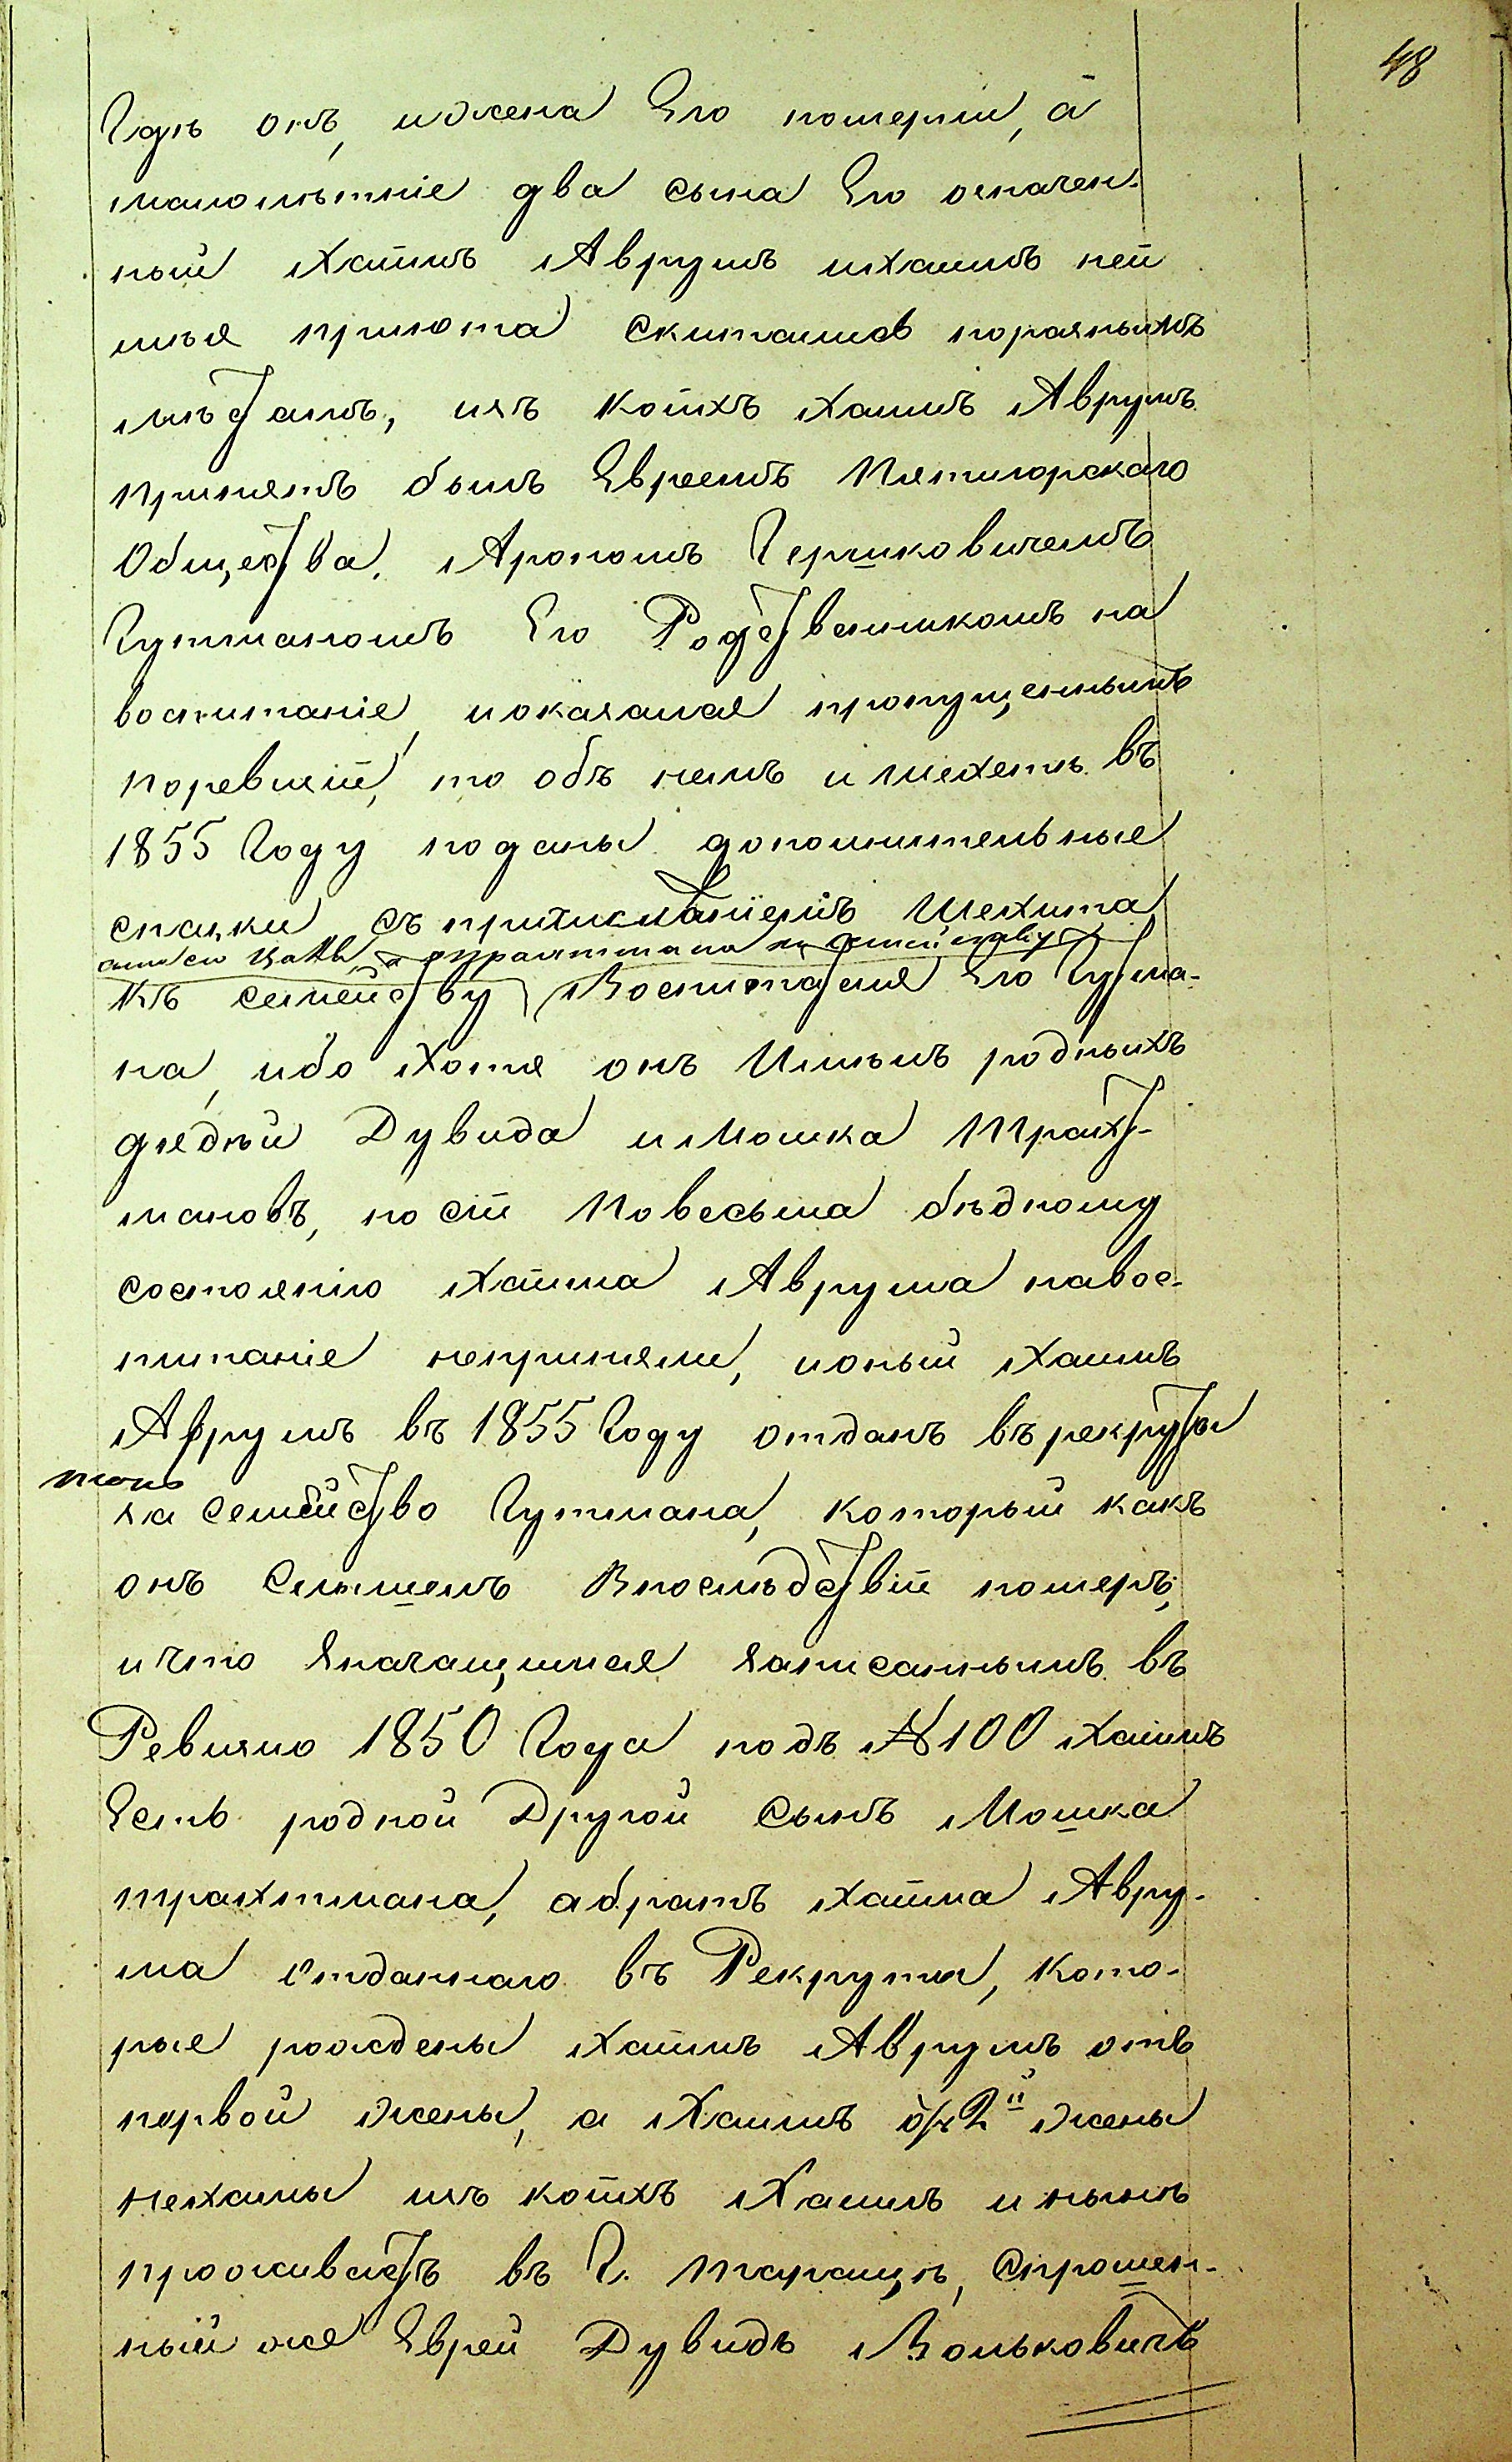 48
Гдѣ онъ, и жена Его померли, а
малолѣтніе два сына Его означен-
ный Хаимъ Аврумъ и Хаимъ неи
мѣя пріюта скитались поразнымъ
мѣстамъ, изъ коихъ Хаимъ Аврумъ
принятъ былъ Евреемъ Пятигорскаго
Общества, Арономъ Гершковичемъ
Гутманомъ Его Родственникомъ на
воспитаніе, иоказался пропущеннымъ
поревизіи, то объ немъ и
1855 Году поданы дополнительные
сказки съ Шехета
къ семейству Воспитателя Его Гутма-
на, ибо Хотя онъ Имѣлъ родныхъ
дядѣй Дувида и Мошка Трахт-
мановъ, но сіи Повесьма бѣдному
состоянію Хаима Аврума навос-
питаніе непринѣли, и оный Хаимъ
Аврумъ въ 1855 Году отданъ въ рекруты
за семейство Гутмана, который какъ
онъ Слышелъ Впослѣдствіи померъ,
ичто Значащимся записаннымъ въ
Ревизію 1850 Года подъ № 100 Хаимъ
Есть родной Другой Сынъ Мошка
трахтмана, абратъ Хаима Авру-
ма Отданнаго въ Рекруты, кото-
рые рождены Хаимъ Аврумъ отъ
первой жены, а Хаимъ отъ 2й жены
Нехамы изъ коихъ Хаимъ и нынѣ
проживаетъ въ Г. Таращѣ, Спрошен-
ный же Еврей Дувидъ Вольковичъ